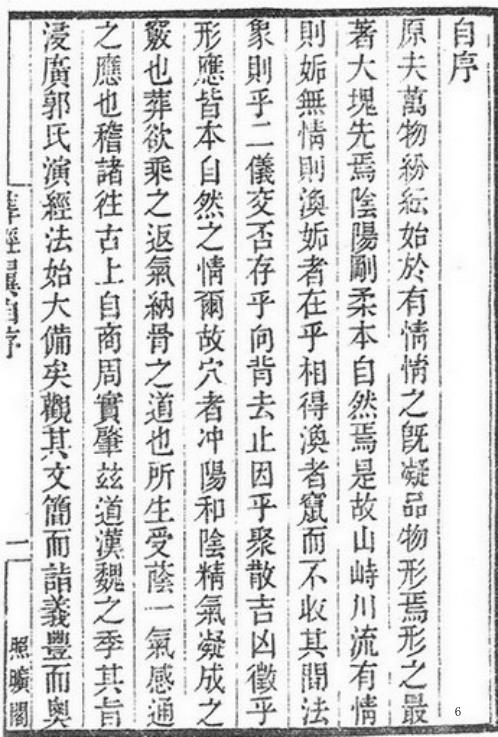 自序
原夫萬物紛紜始於有情情之旣凝品物形焉形之最
著大塊先焉陰陽剛柔本自然焉是故山峙川流有情
則姤無情則渙姤者在乎相得渙者竄而不收其間法
象則乎二儀交否存乎向背去止因乎聚散吉凶徵乎
形應皆本自然之情爾故穴者冲陽和陰精氣凝成之
竅也葬欲乘之返氣納骨之道也所生受蔭一氣感通
之應也稽諸徃古上自商周實肇玆道漢魏之季其旨
浸廣郭氏演經法始大備矣觀其文簡而詣義豐而奧
葬經翼自序
一
照曠閣
6